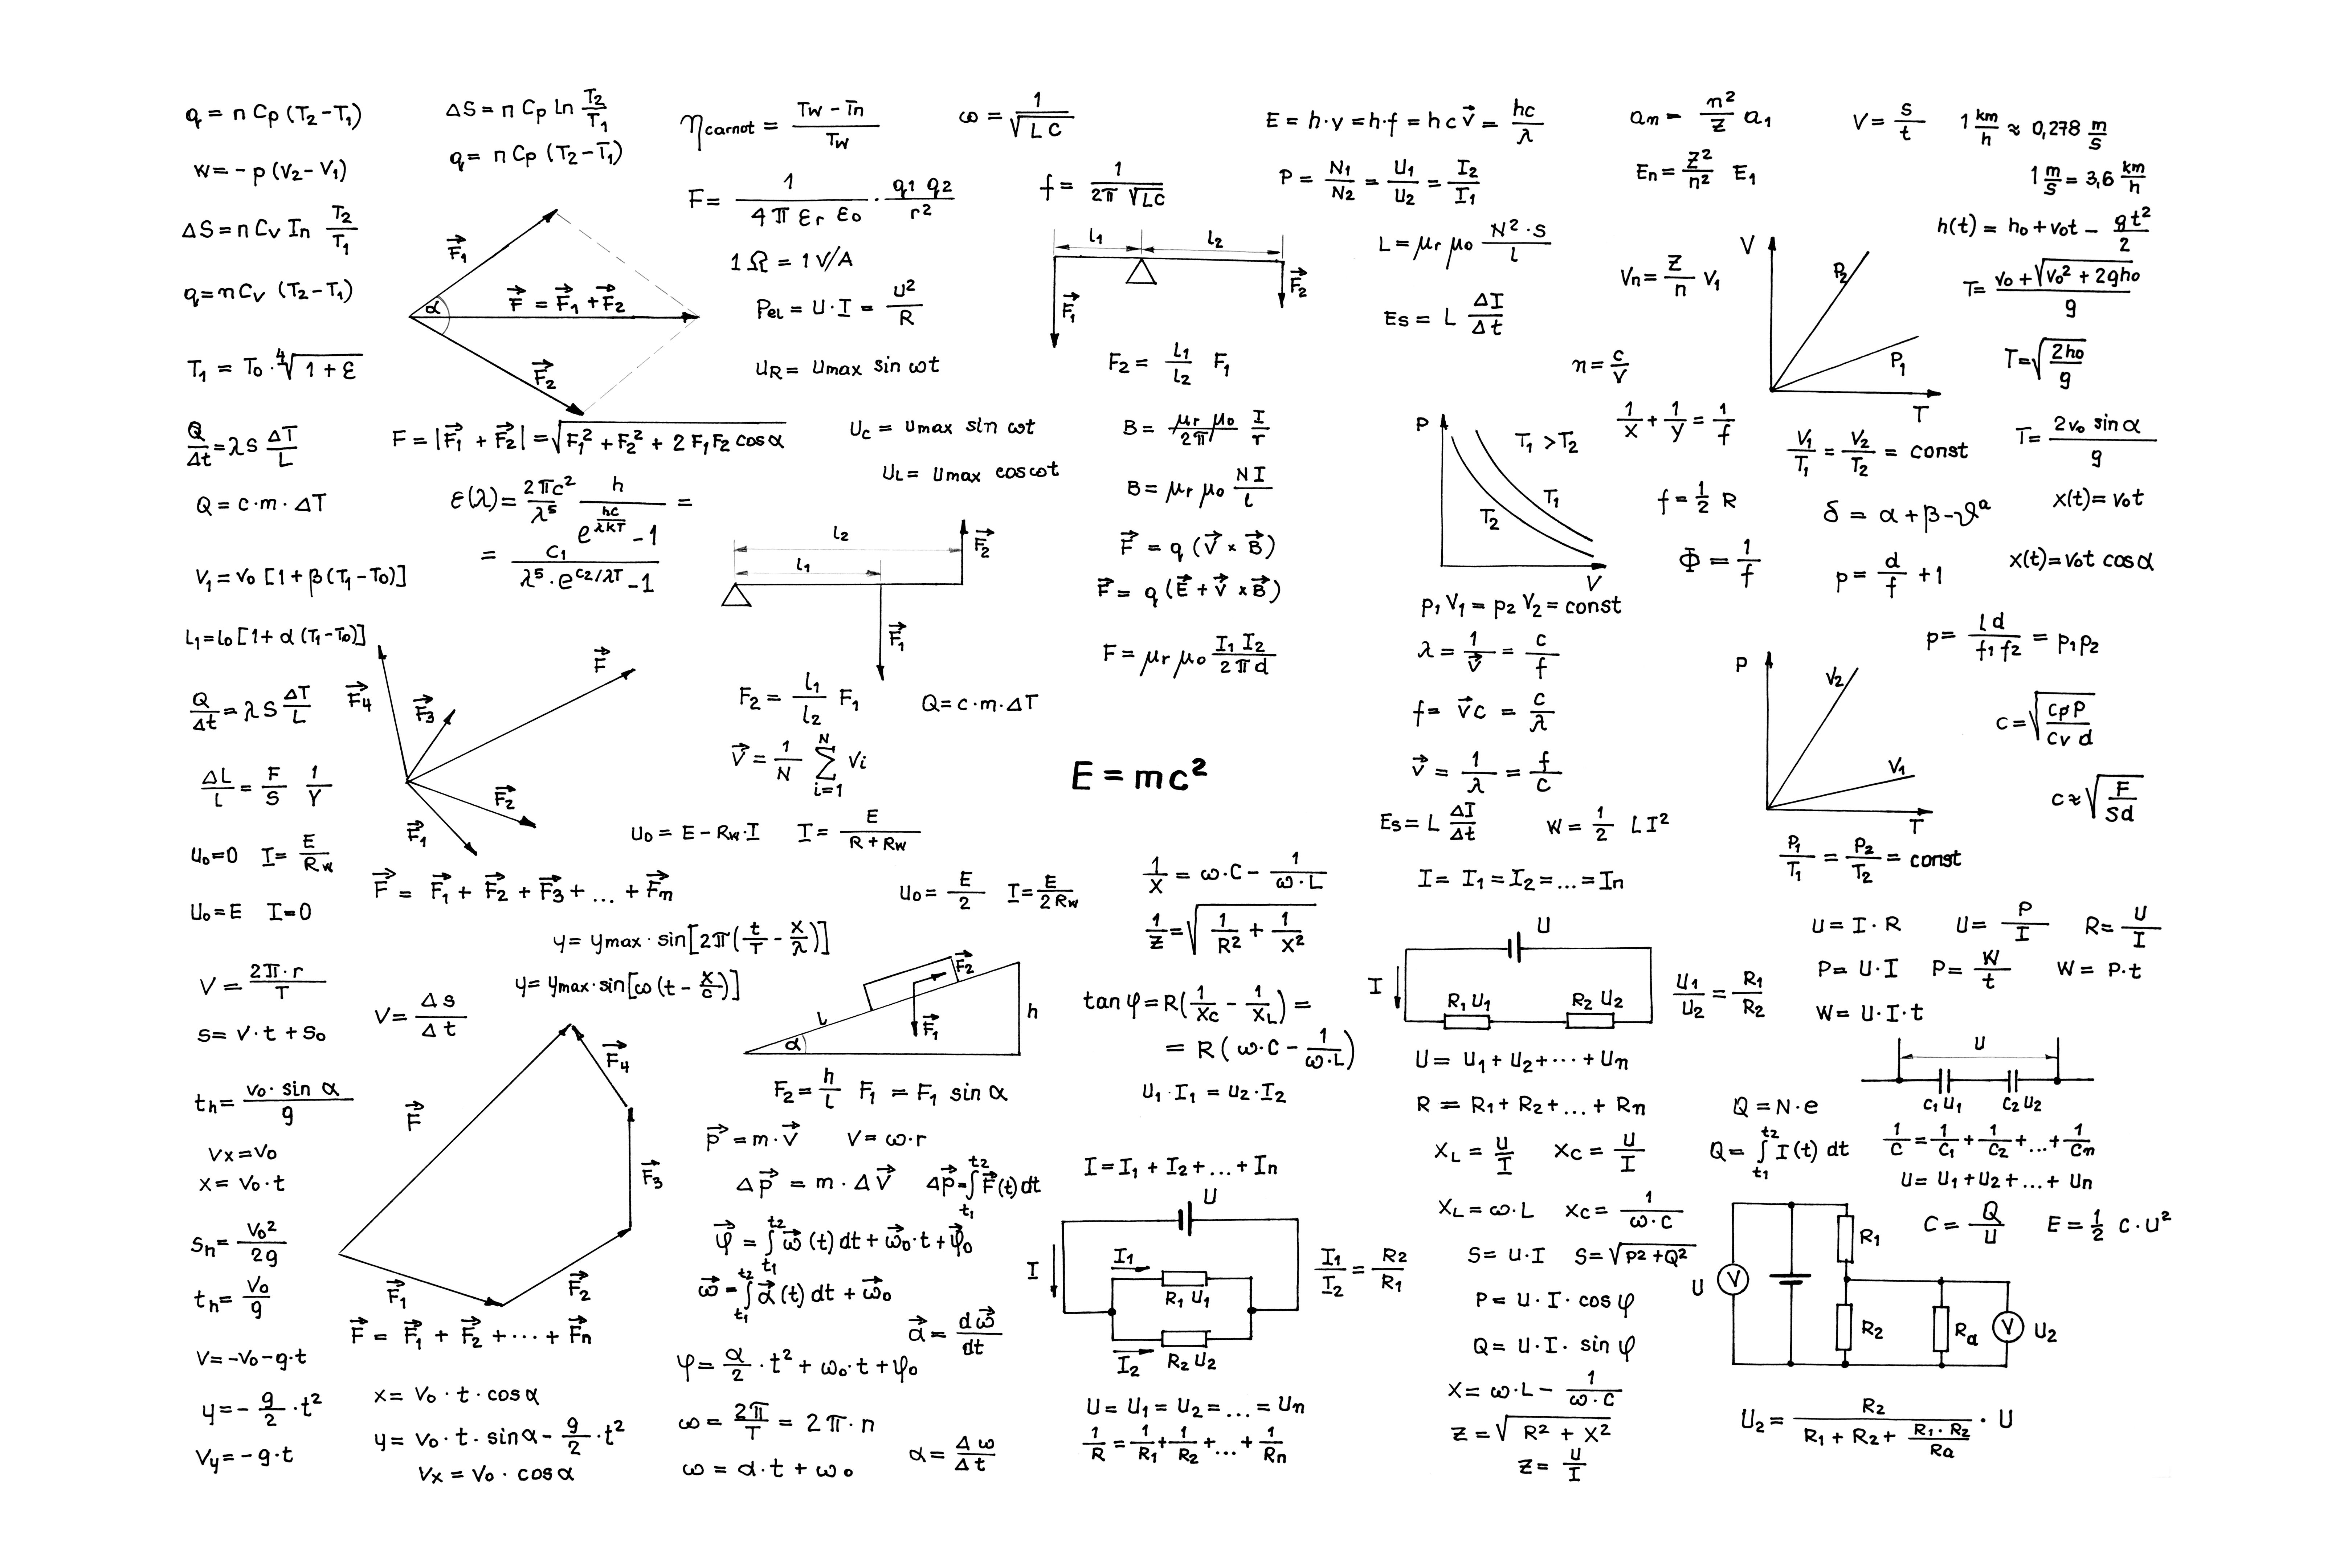 q = n Cp (T₂ – T₁)
W = – p (V₂ – V₁)
ΔS = n Cv In T₂/T₁
q = n Cv (T₂ – T₁)
T₁ = T₀ · ⁴√(1 + ε)
Q/Δt = λ S ΔT/L
Q = c · m · ΔT
V₁ = V₀ [1 + β (T₁ – T₀)]
L₁ = L₀ [1 + α (T₁ – T₀)]
Q/Δt = λ S ΔT/L
ΔL/L = F/S 1/Y
U₀ = 0 I = E/Rw
U₀ = E I = 0
V = 2π · r/T
s = v · t + s₀
th = v₀ · sin α/g
Vx = V₀
x = V₀ · t
Sn = V₀²/2g
th = V₀/g
V = –V₀ – g · t
y = – g/2 · t²
Vy = – g · t
ΔS = n Cp ln T₂/T₁
q = n Cp (T₂ – T₁)
F⃗₁
α
F⃗ = F⃗₁ + F⃗₂
F⃗₂
F = |F⃗₁ + F⃗₂| = √(F₁² + F₂² + 2 F₁F₂ cos α)
ε(λ) = 2πc²/λ⁵ h/(e^(hc/λkT) – 1) =
= C₁/(λ⁵ · e^(C₂/λT) – 1)
F⃗₄
F⃗₃
F⃗
F⃗₂
F⃗₁
F⃗ = F⃗₁ + F⃗₂ + F⃗₃ + ... + F⃗n
y = ymax · sin[2π(t/T – x/λ)]
y = ymax · sin[ω(t – x/c)]
V = Δs/Δt
F⃗
F⃗₄
F⃗₃
F⃗₂
F⃗₁
F⃗ = F⃗₁ + F⃗₂ + ... + F⃗n
x = V₀ · t · cos α
y = V₀ · t · sin α – g/2 · t²
Vx = V₀ · cos α
ηcarnot = (Tw – Tn)/Tw
F = 1/(4 π εr ε₀) · q₁ q₂/r²
1 Ω = 1 V/A
Pel = U · I = U²/R
UR = Umax sin ωt
Uc = Umax sin ωt
UL = Umax cos ωt
l₂
l₁
F⃗₂
F⃗₁
F₂ = l₁/l₂ F₁
Q = c · m · ΔT
V⃗ = 1/N Σ(i=1, N) Vi
U₀ = E – Rw · I I = E/(R + Rw)
U₀ = E/2 I = E/2Rw
F⃗₂
l
F⃗₁
h
α
F₂ = h/l F₁ = F₁ sin α
p⃗ = m · v⃗ V = ω · r
Δp⃗ = m · Δv⃗ Δp⃗ = ∫(t₁, t₂) F⃗(t) dt
φ⃗ = ∫(t₁, t₂) ω⃗ (t) dt + ω⃗₀ · t + φ⃗₀
ω⃗ = ∫(t₁, t₂) α⃗ (t) dt + ω⃗₀
α⃗ = dω⃗/dt
φ = α/2 · t² + ω₀ · t + φ₀
ω = 2π/T = 2π · n
ω = α · t + ω₀
α = Δω/Δt
ω = 1/√(L C)
f = 1/(2π √(LC))
l₁ l₂
F⃗₁
F⃗₂
F₂ = l₁/l₂ F₁
B = μr μ₀/2π I/r
B = μr μ₀ N I/l
F⃗ = q (V⃗ × B⃗)
F⃗ = q (E⃗ + V⃗ × B⃗)
F = μr μ₀ I₁ I₂/2πd
E = mc²
1/X = ω · C – 1/(ω · L)
1/Z = √(1/R² + 1/X²)
tan φ = R(1/Xc – 1/XL) =
= R (ω · C – 1/(ω · L))
U₁ · I₁ = U₂ · I₂
I = I₁ + I₂ + ... + In
U
I
I₁
R₁ U₁
I₂
R₂ U₂
I₁/I₂ = R₂/R₁
U = U₁ = U₂ = ... = Un
1/R = 1/R₁ + 1/R₂ + ... + 1/Rn
E = h · ν = h · f = h c v⃗ = hc/λ
P = N₁/N₂ = U₁/U₂ = I₂/I₁
L = μr μ₀ N² · S/l
Es = L ΔI/Δt
n = c/v
P
T₁ > T₂
T₁
T₂
V
p₁ V₁ = p₂ V₂ = const
λ = 1/v⃗ = c/f
f = v⃗ c = c/λ
v⃗ = 1/λ = f/c
Es = L ΔI/Δt W = 1/2 LI²
I = I₁ = I₂ = ... = In
U
I
R₁ U₁
R₂ U₂
U₁/U₂ = R₁/R₂
U = U₁ + U₂ + ... + Un
R = R₁ + R₂ + ... + Rn
XL = U/I Xc = U/I
XL = ω · L Xc = 1/(ω · C)
S = U · I S = √(P² + Q²)
P = U · I · cos φ
Q = U · I · sin φ
X = ω · L – 1/(ω · C)
Z = √(R² + X²)
Z = U/I
an = n²/Z a₁
En = Z²/n² E₁
Vn = Z/n V₁
V
P₂
P₁
T
1/X + 1/Y = 1/f
V₁/T₁ = V₂/T₂ = const
f = 1/2 R
δ = α + β – ϑᵃ
Φ = 1/f
p = d/f + 1
P
V₂
V₁
T
P₁/T₁ = P₂/T₂ = const
V = s/t
1 km/h ≈ 0,278 m/s
1 m/s = 3,6 km/h
h(t) = h₀ + v₀t – gt²/2
T = (v₀ + √(v₀² + 2gh₀))/g
T = √(2h₀/g)
T = 2v₀ sin α/g
x(t) = v₀t
x(t) = v₀t cos α
p = l d/f₁ f₂ = p₁p₂
c = √(cp P/cv d)
c ≈ √(F/Sd)
U = I · R U = P/I R = U/I
P = U · I P = W/t W = P · t
W = U · I · t
U
C₁ U₁ C₂ U₂
Q = N · e
Q = ∫(t₁, t₂) I(t) dt
1/C = 1/C₁ + 1/C₂ + ... + 1/Cn
U = U₁ + U₂ + ... + Un
C = Q/U E = 1/2 C · U²
U
V
R₁
R₂
Ra
V
U₂
U₂ = R₂/(R₁ + R₂ + R₁ · R₂/Ra) · U